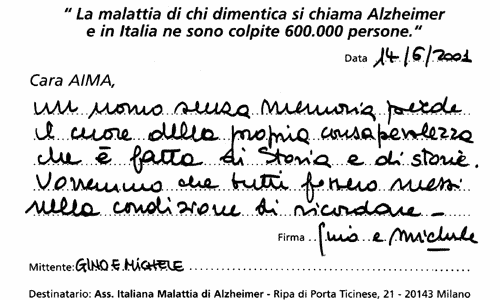 “ La malattia di chi dimentica si chiama Alzheimer
e in Italia ne sono colpite 600.000 persone.“
Data 14/6/2001
Cara AIMA,
un uomo senza memoria perde
il cuore della propria consapevolezza
che è fatta di Storia e di storie.
Vorremmo che tutti fossero messi
nella condizione di ricordare –
Firma Gino e Michele
Mittente: GINO E MICHELE
Destinatario: Ass. Italiana Malattia di Alzheimer - Ripa di Porta Ticinese, 21 - 20143 Milano